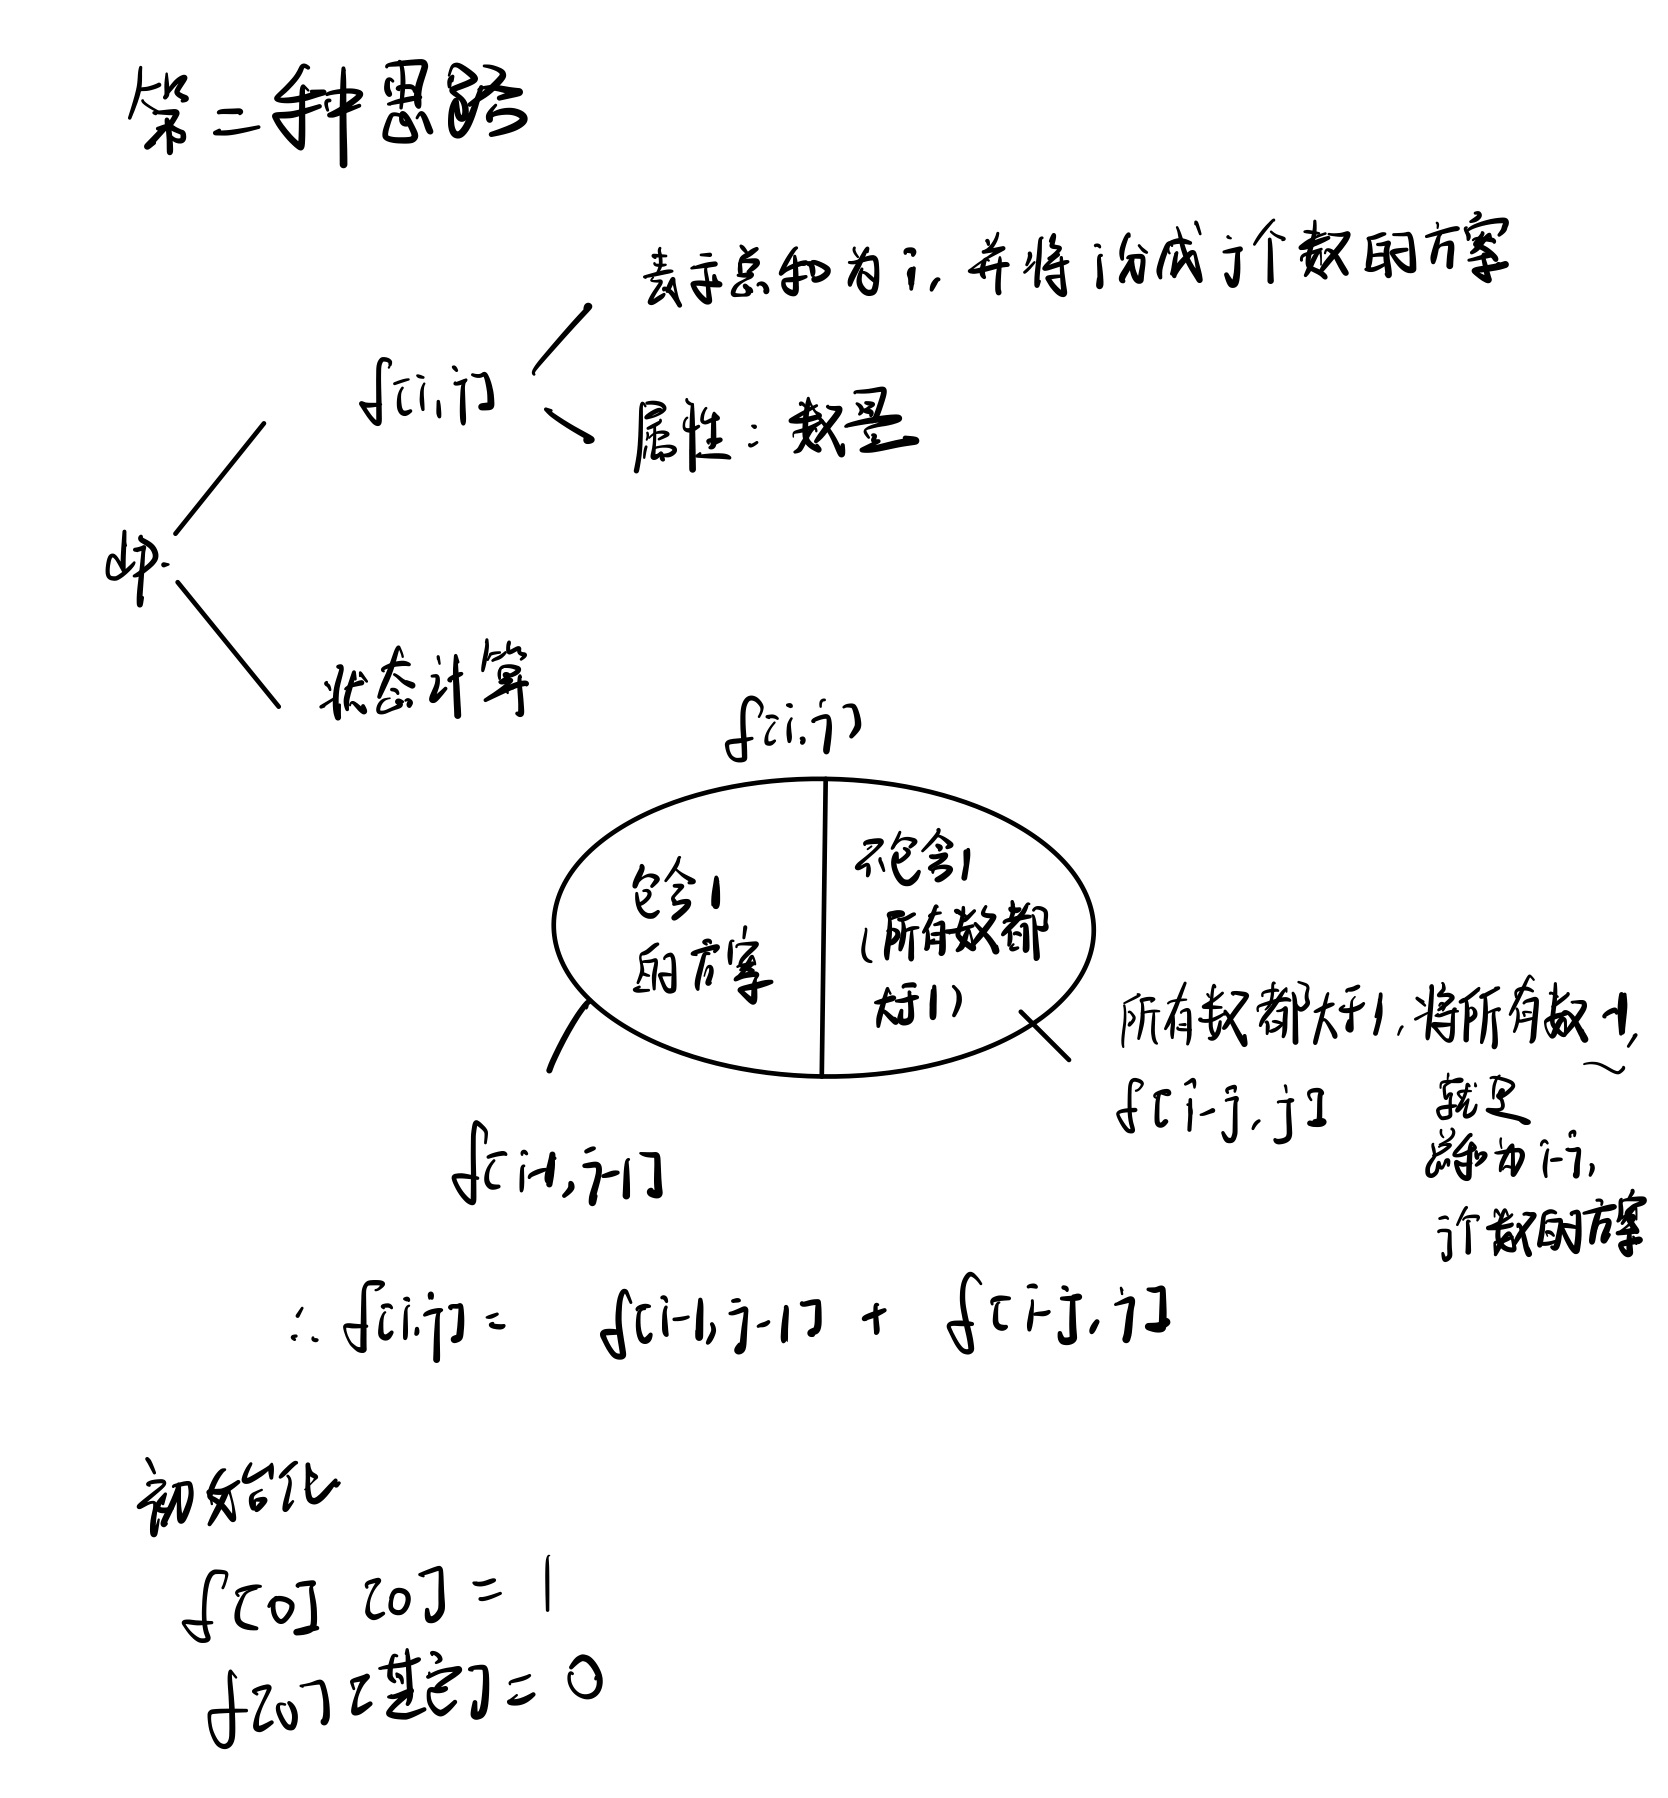 第二种思路
表示总和为i, 并将i分成j个数的方案
f[i,j]
属性：数量
dp.
状态计算
f[i,j]
包含1
的方案
不包含1
(所有数都
大于1)
所有数都大于1, 将所有数-1,
f[i-j, j]
就是
总和为i-j,
j个数的方案
f[i-1, j-1]
∴ f[i,j] = f[i-1, j-1] + f[i-j, j]
初始化
f[0] [0] = 1
f[0] [其它] = 0